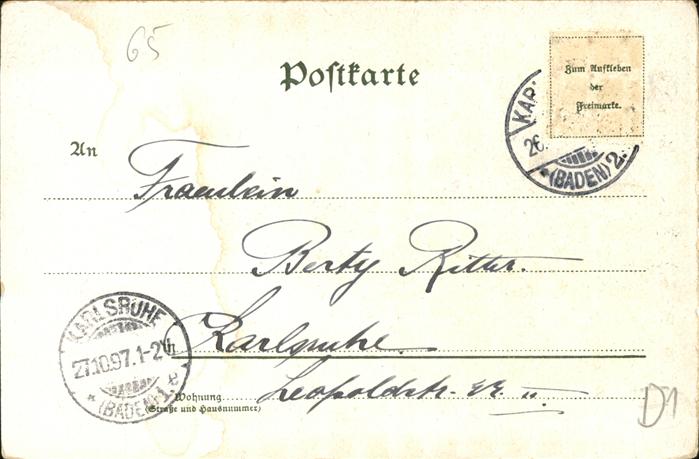 65
Postkarte
Zum Aufkleben
der
Freimarke.
KAR
26.
(BADEN) 2.
An
Fraeulein
Berty Ritter.
KARLSRUHE
27.10.97.1-2N
* (BADEN) 1. e
in Karlsruhe.
Wohnung Leopoldstr.
(Straße und Hausnummer)
D1